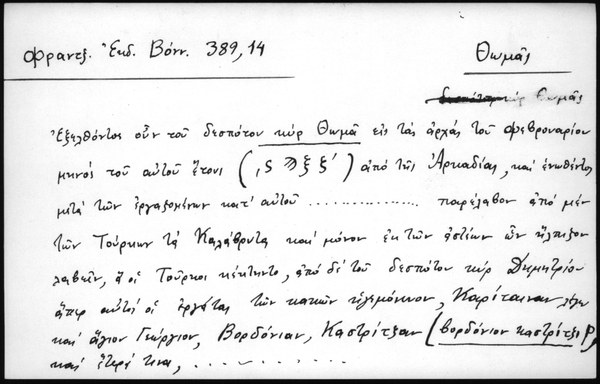 Φραντζ. Ἔκδ. Βόνν. 389,14
Θωμᾶς
κὺρ Θωμᾶς
Ἐξελθόντος οὖν τοῦ δεσπότου κὺρ Θωμᾶ εἰς τὰς ἀρχὰς τοῦ Φεβρουαρίου
μηνὸς τοῦ αὐτοῦ ἔτους (͵ϛϠξζ´) ἀπὸ τῆς Ἀρκαδίας, καὶ ἑνωθέντος
μετὰ τῶν ἐργαζομένων κατ' αὐτοῦ ................ παρέλαβον ἀπὸ μὲν
τῶν Τούρκων τὰ Καλάβρυτα καὶ μόνον ἐκ τῶν ἀστείων ὧν ἤλπιζον
λαβεῖν, ἃ οἱ Τοῦρκοι κέκτηντο, ἀπὸ δὲ τοῦ δεσπότου κὺρ Δημητρίου
ἅπερ αὐτοὶ οἱ ἐργάται τῶν κακῶν ἡγεμόνευον, Καρίταιναν,
καὶ ἅγιον Γεώργιον, Βορδόνιαν, Καστρίτζαν (βορδόνιον καστρίτζι P)
καὶ ἕτερά τινα, . . . . . . . .